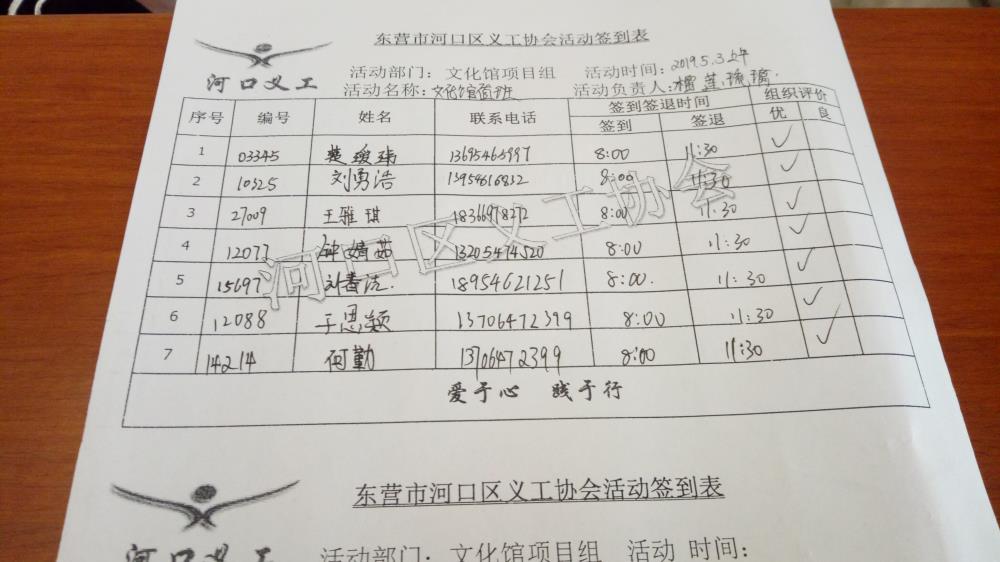 东营市河口区义工协会活动签到表
河口义工
活动部门：文化馆项目组 活动时间：2019.5.3上午
活动名称：文化馆值班 活动负责人：榴莲琉璃.
序号 编号 姓名 联系电话 签到签退时间 组织评价
签到 签退 优 良
1 03345 13695465997 8:00 11:30 ✓
2 10325 刘勇浩 13954616832 8:00 11:30 ✓
3 27009 王雅琪 18366978272 8:00 11:30 ✓
4 12077 钟婧茹 13205474520 8:00 11:30 ✓
5 15697 刘春洁. 18954621251 8:00. 11:30 ✓
6 12088 于恩颖 13706472399 8:00 11:30 ✓
7 14214 何勤 13706472399 8:00 11:30 ✓
爱于心 践于行
河口区义工协会
东营市河口区义工协会活动签到表
河口义工
活动部门：文化馆项目组 活动 时间：